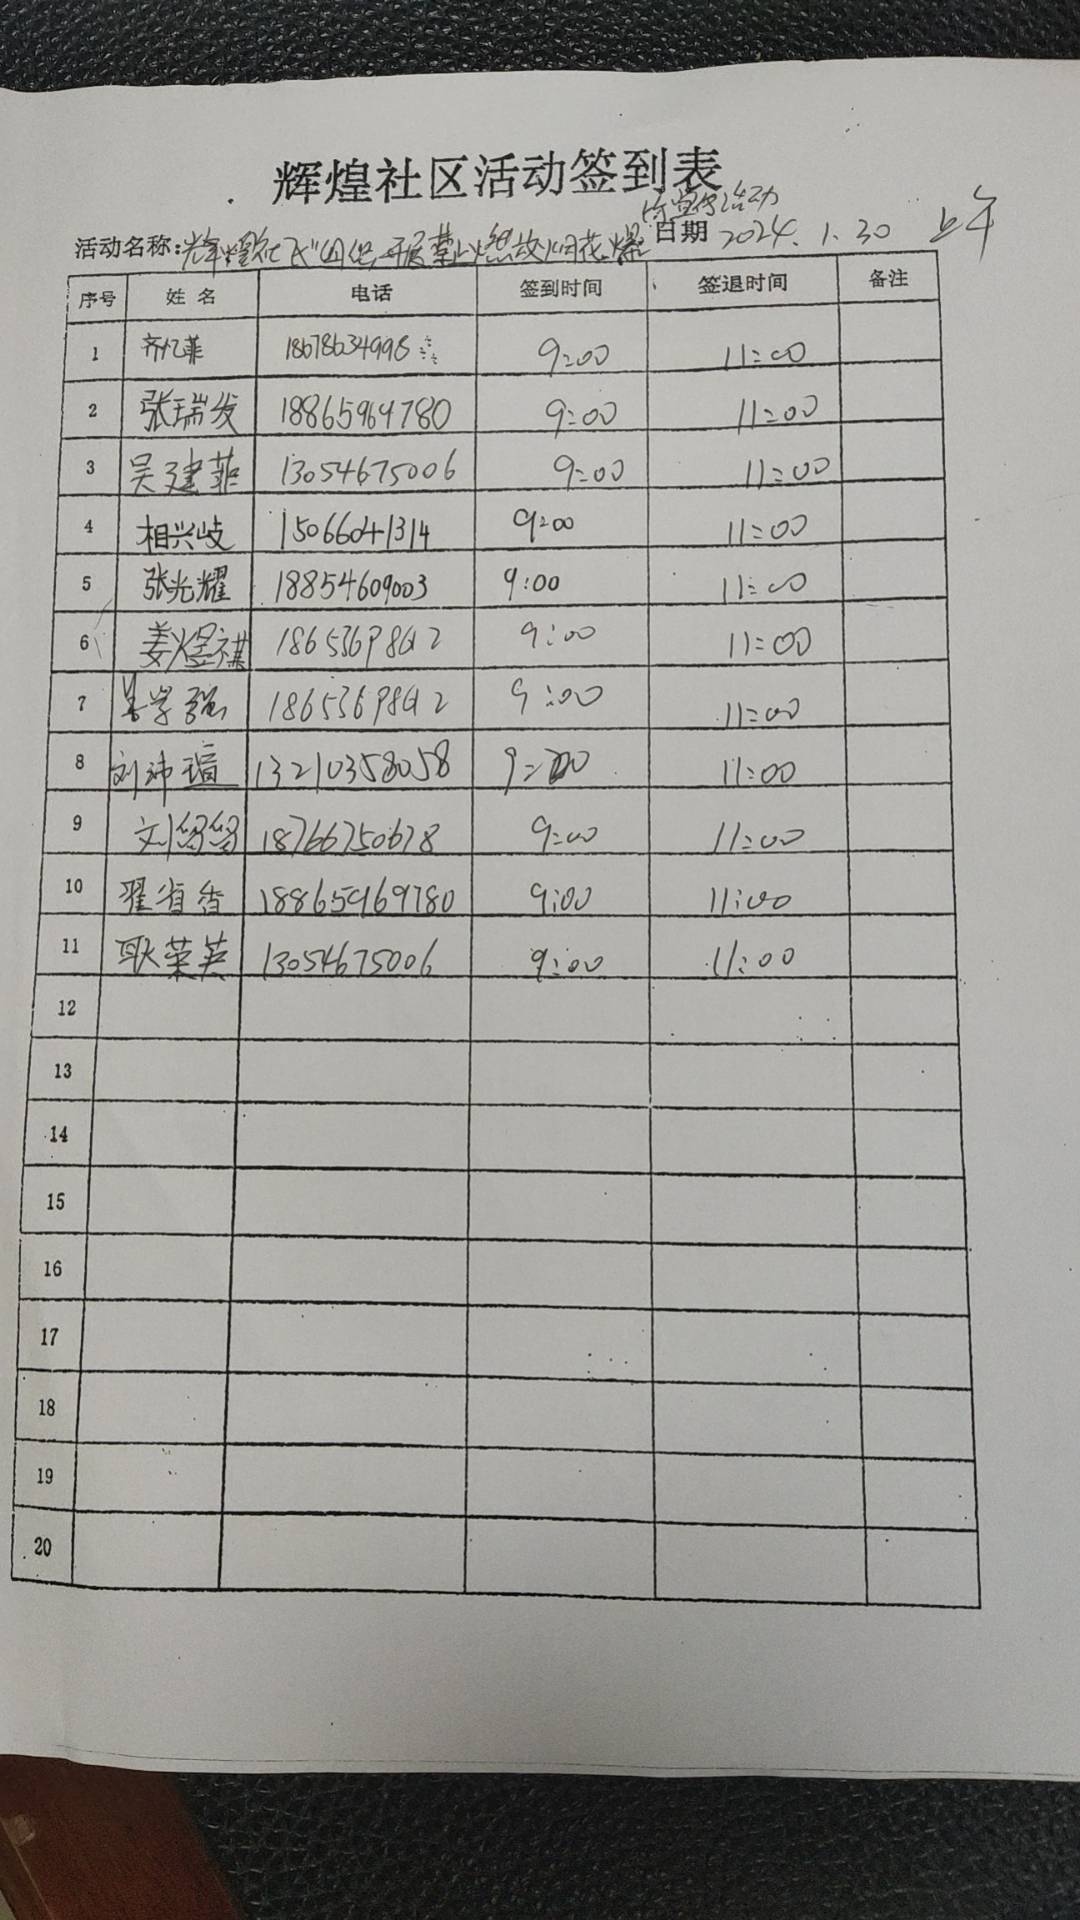 辉煌社区活动签到表
竹宣传活动
活动名称:辉煌社区组织开展禁止燃放烟花爆 日期 2024.1.30 上午
序号 姓名 电话 签到时间 签退时间 备注
1 齐忆菲 18678634998 9:00 11:00
2 张瑞发 18865969780 9:00 11:00
3 吴建菲 13054675006 9:00 11:00
4 相兴岐 15066041314 9:00 11:00
5 张光耀 18854609003 9:00 11:00
6 姜煜祺 9:00 11:00
7 9:00 11:00
8 刘沛瑄 13210358058 9:00 11:00
9 18766750678 9:00 11:00
10 翟省香 18865969780 9:00 11:00
11 耿荣英 13054675006 9:00 11:00
12
13
14
15
16
17
18
19
20